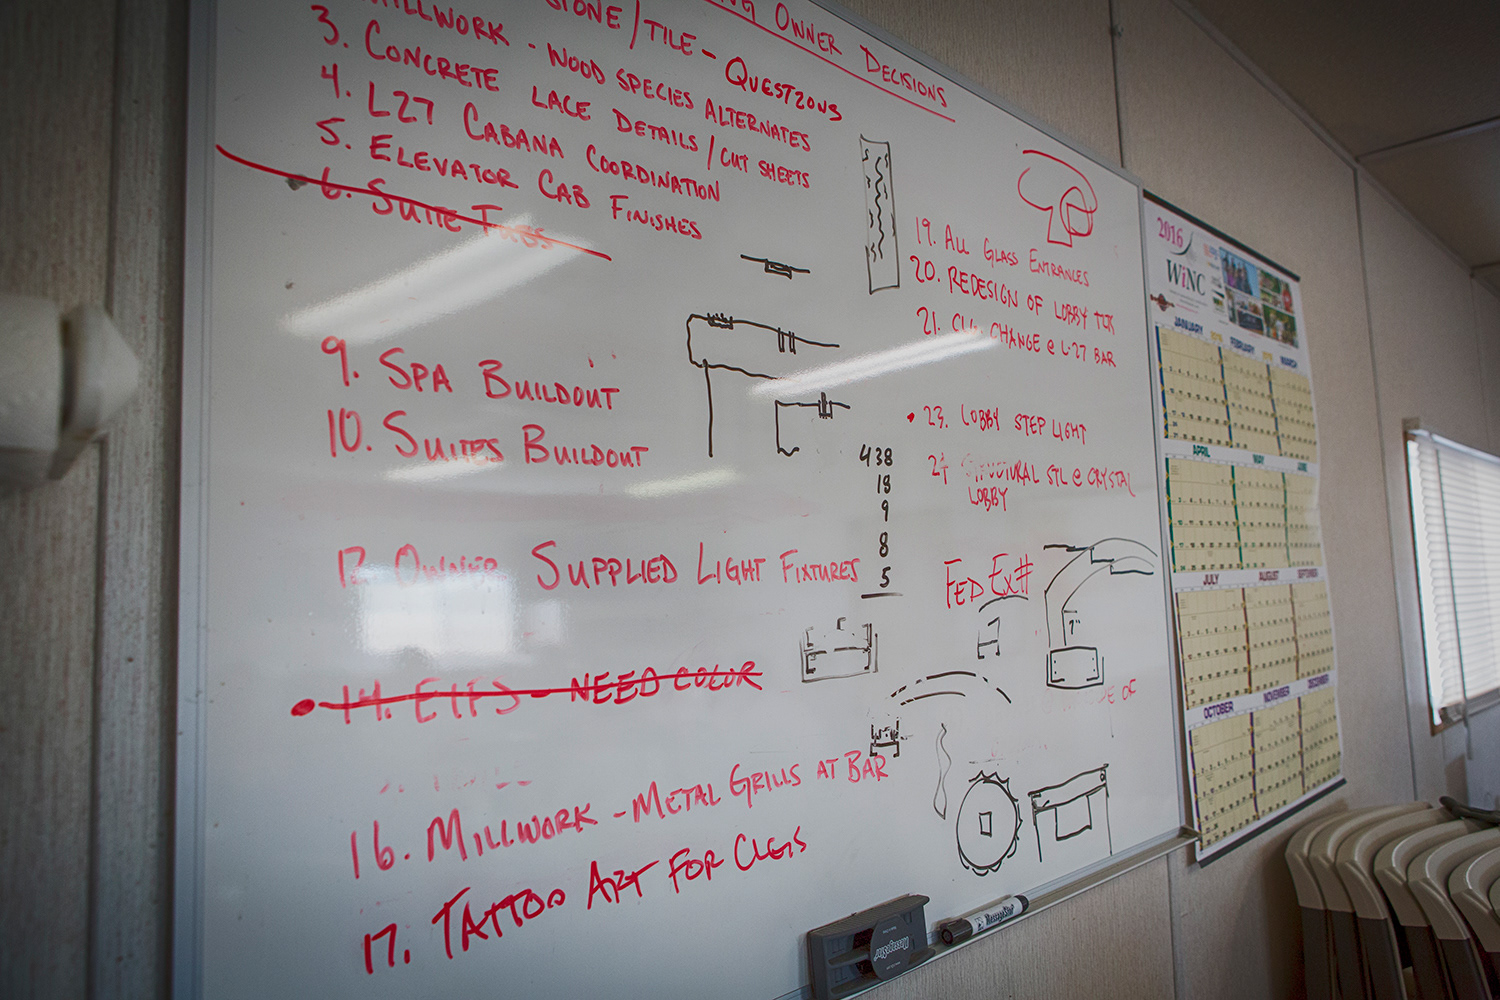 OWNER DECISIONS
STONE/TILE - QUESTIONS
MILLWORK - WOOD SPECIES ALTERNATES
3. CONCRETE LACE DETAILS / CUT SHEETS
4. L27 CABANA COORDINATION
5. ELEVATOR CAB FINISHES
6. SUITE TUBS
9. SPA BUILDOUT
10. SUITES BUILDOUT
12. OWNER SUPPLIED LIGHT FIXTURES
14. EIFS - NEED COLOR
16. MILLWORK - METAL GRILLS AT BAR
17. TATTOO ART FOR CLGS
438
18
9
8
5
19. ALL GLASS ENTRANCES
20. REDESIGN OF LOBBY
21. CHANGE @ L-27 BAR
23. LOBBY STEP LIGHT
24 STRUCTURAL STL @ CRYSTAL
LOBBY
FED EX#
7"
OF
2016
WiNC
JANUARY
FEBRUARY
MARCH
APRIL
MAY
JUNE
JULY
AUGUST
SEPTEMBER
OCTOBER
NOVEMBER
DECEMBER